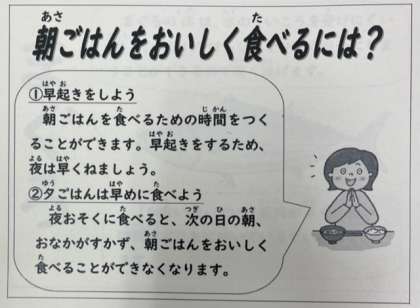 朝ごはんをおいしく食べるには？
①早起きをしよう
朝ごはんを食べるための時間をつく
ることができます。早起きをするため、
夜は早くねましょう。
②夕ごはんは早めに食べよう
夜おそくに食べると、次の日の朝、
おなかがすかず、朝ごはんをおいしく
食べることができなくなります。